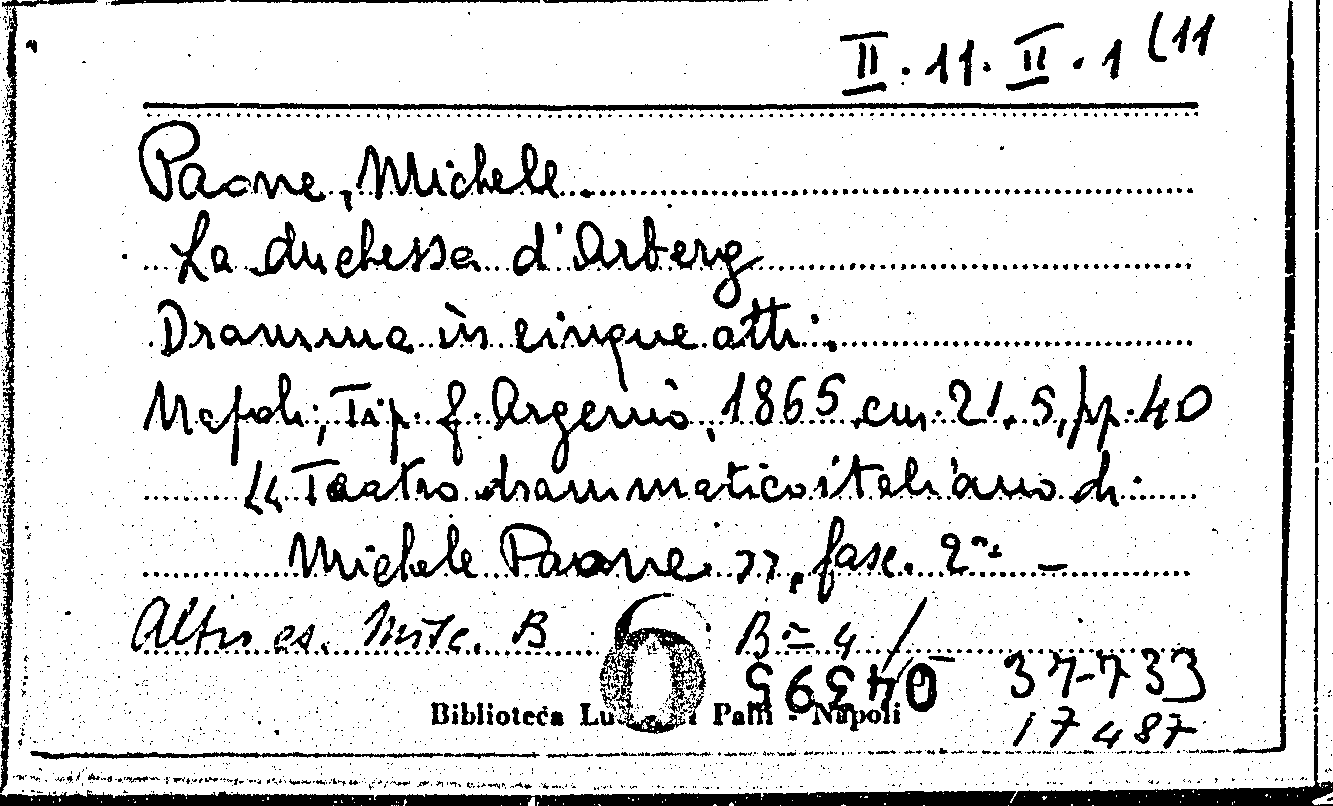 II. 11. II. 1 (11
Paone, Michele
La duchessa d'Arberg
Dramma in cinque atti.
Napoli, Tip. f. Argenio, 1865 cm. 21.5, pp. 40
"Teatro drammatico italiano di
Michele Paone", fasc. 2º. —
Altro es. Misc. B B = 4/
37-733
Biblioteca Napoli
17487